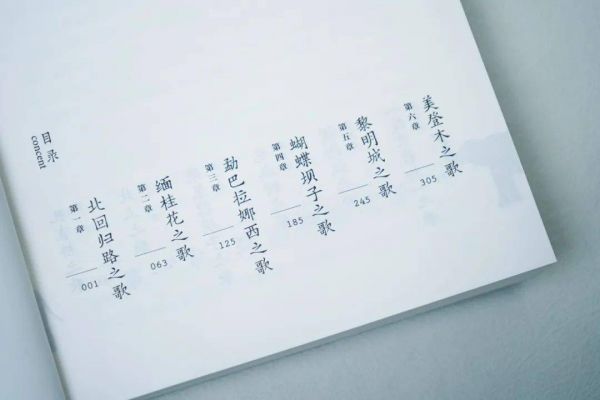 目录
concent
第一章
北回归路之歌
001
第二章
缅桂花之歌
063
第三章
勐巴拉娜西之歌
125
第四章
蝴蝶坝子之歌
185
第五章
黎明城之歌
245
第六章
美登木之歌
305